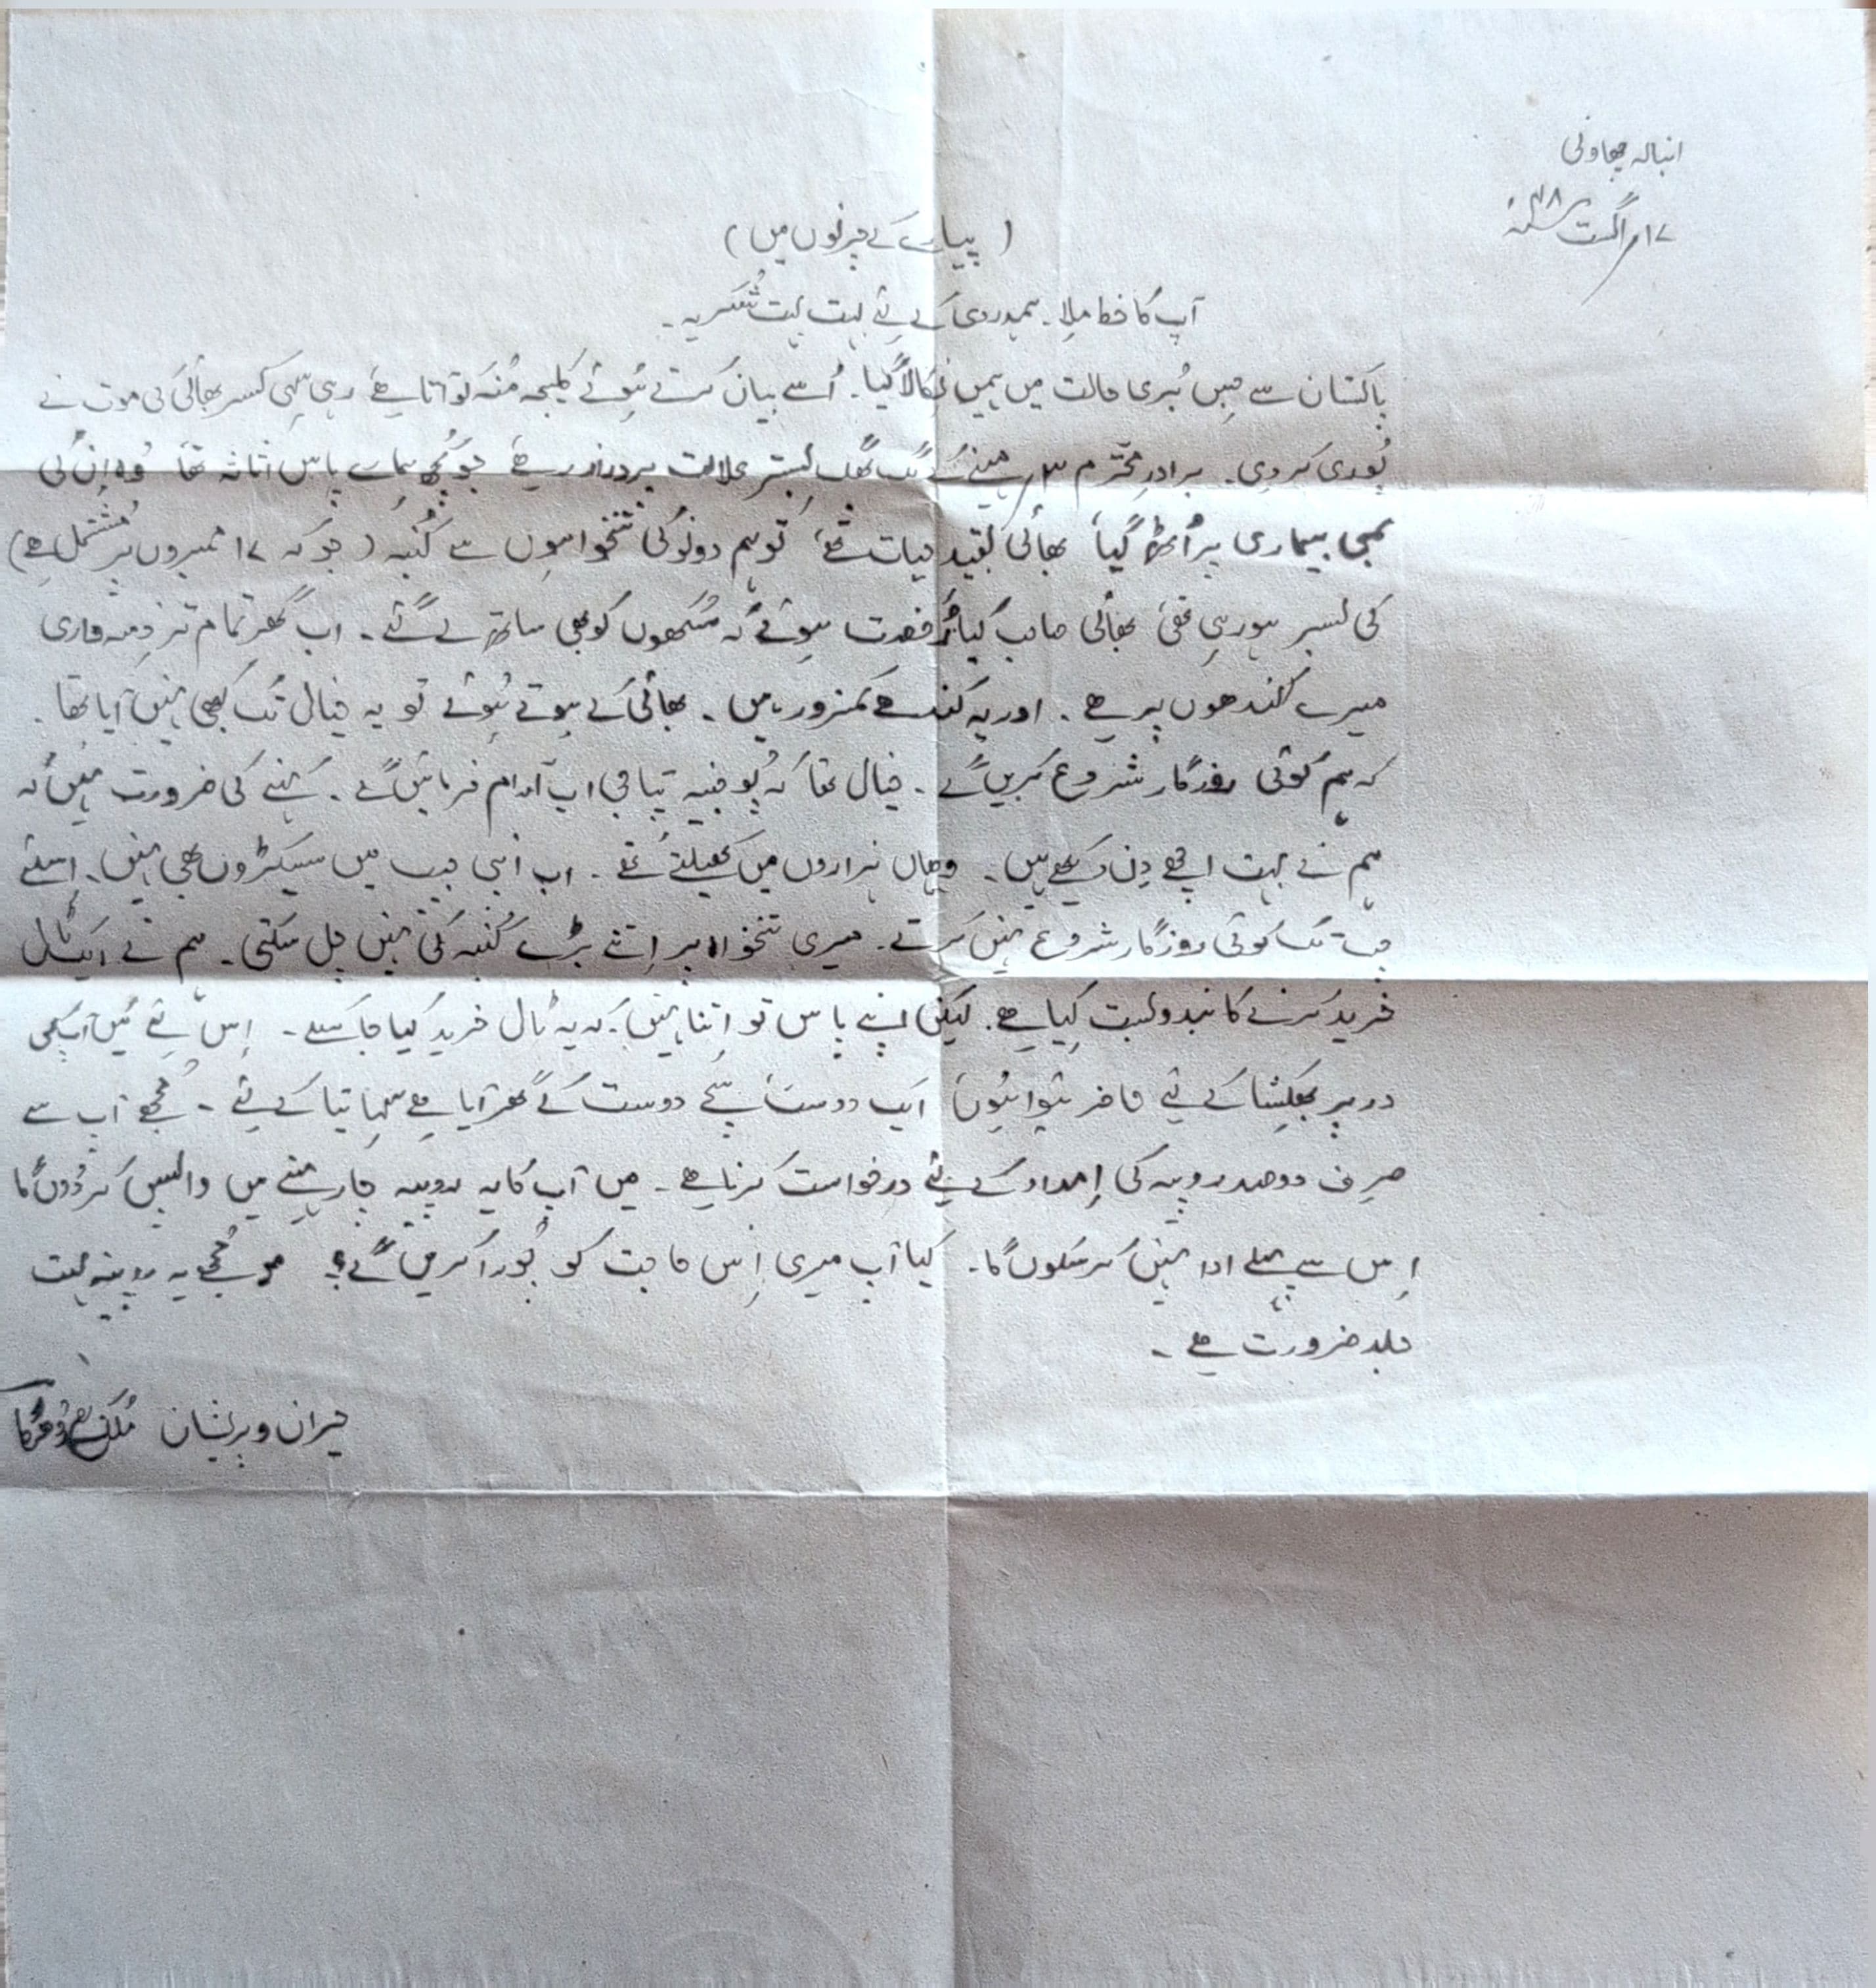 انبالہ چھاونی
۱۷ اگست ۴۸ء
(پیارے کے چرنوں میں)
آپ کا خط مِلا۔ ہمدردی کے لئے بہت بہت شُکریہ۔
پاکستان سے جِس بُری حالت میں ہمیں نِکالا گیا۔ اُسے بیان کرتے ہُوئے کلیجہ مُنہ کو آتا ہے رہی سہی کسر بھائی کی موت نے
پُوری کر دی۔ برادرِ محترم ۳ مہینے کے لگ بھگ بسترِ علالت پر دراز رہے جو کُچھ ہمارے پاس اثاثہ تھا وُہ اِن کی
لمبی بیماری پر اُٹھ گیا بھائی بقیدِ حیات تھے، تو ہم دونو کی تنخواہوں سے کُنبہ (جو کہ ۱۷ ممبروں پر مُشتمل ہے)
کی بسر ہو رہی تھی بھائی صاحب کیا رُخصت ہوئے کہ سُکھوں کو بھی ساتھ لے گئے۔ اب گھر تمام تر ذِمہ واری
میرے کندھوں پر ہے۔ اور یہ کندھے کمزور ہیں۔ بھائی کے ہوتے ہُوئے تو یہ خیال تک بھی نہیں آیا تھا۔
کہ ہم کوئی روزگار شروع کریں گے۔ خیال تھا کہ پُوجنیہ پِتا جی اب آرام فرمائیں گے۔ کہنے کی ضرورت نہیں کہ
ہم نے بہت اچھے دِن دیکھے ہیں۔ وہاں ہزاروں میں کھیلتے تھے۔ اب اپنی جیب میں سینکڑوں بھی نہیں۔ اِسلئے
جب تک کوئی روزگار شروع نہیں کرتے۔ میری تنخواہ پر اِتنے بڑے کُنبہ کی نہیں چل سکتی۔ ہم نے ایک ٹال
خرید کرنے کا بندوبست کِیا ہے۔ لیکن اپنے پاس تو اِتنا نہیں۔ کہ یہ ٹال خرید کیا جا سکے۔ اِس لئے مَیں آپکے
در پر بھِکشا کے لئے حاضر ہُوا ہُوں ایک دوست سچے دوست کے گھر آیا ہے سہایتا کے لئے۔ مُجھے آپ سے
صِرف دو صد روپیہ کی اِمداد کے لئے درخواست کرنا ہے۔ میں آپ کا یہ روپیہ چار مہینے میں واپس کر دُوں گا
اِس سے پہلے ادا نہیں کر سکوں گا۔ کیا آپ میری اِس حاجت کو پُورا کریں گے؟ مُجھے یہ روپیہ بہت
جلد ضرورت ہے۔
حیران و پریشان